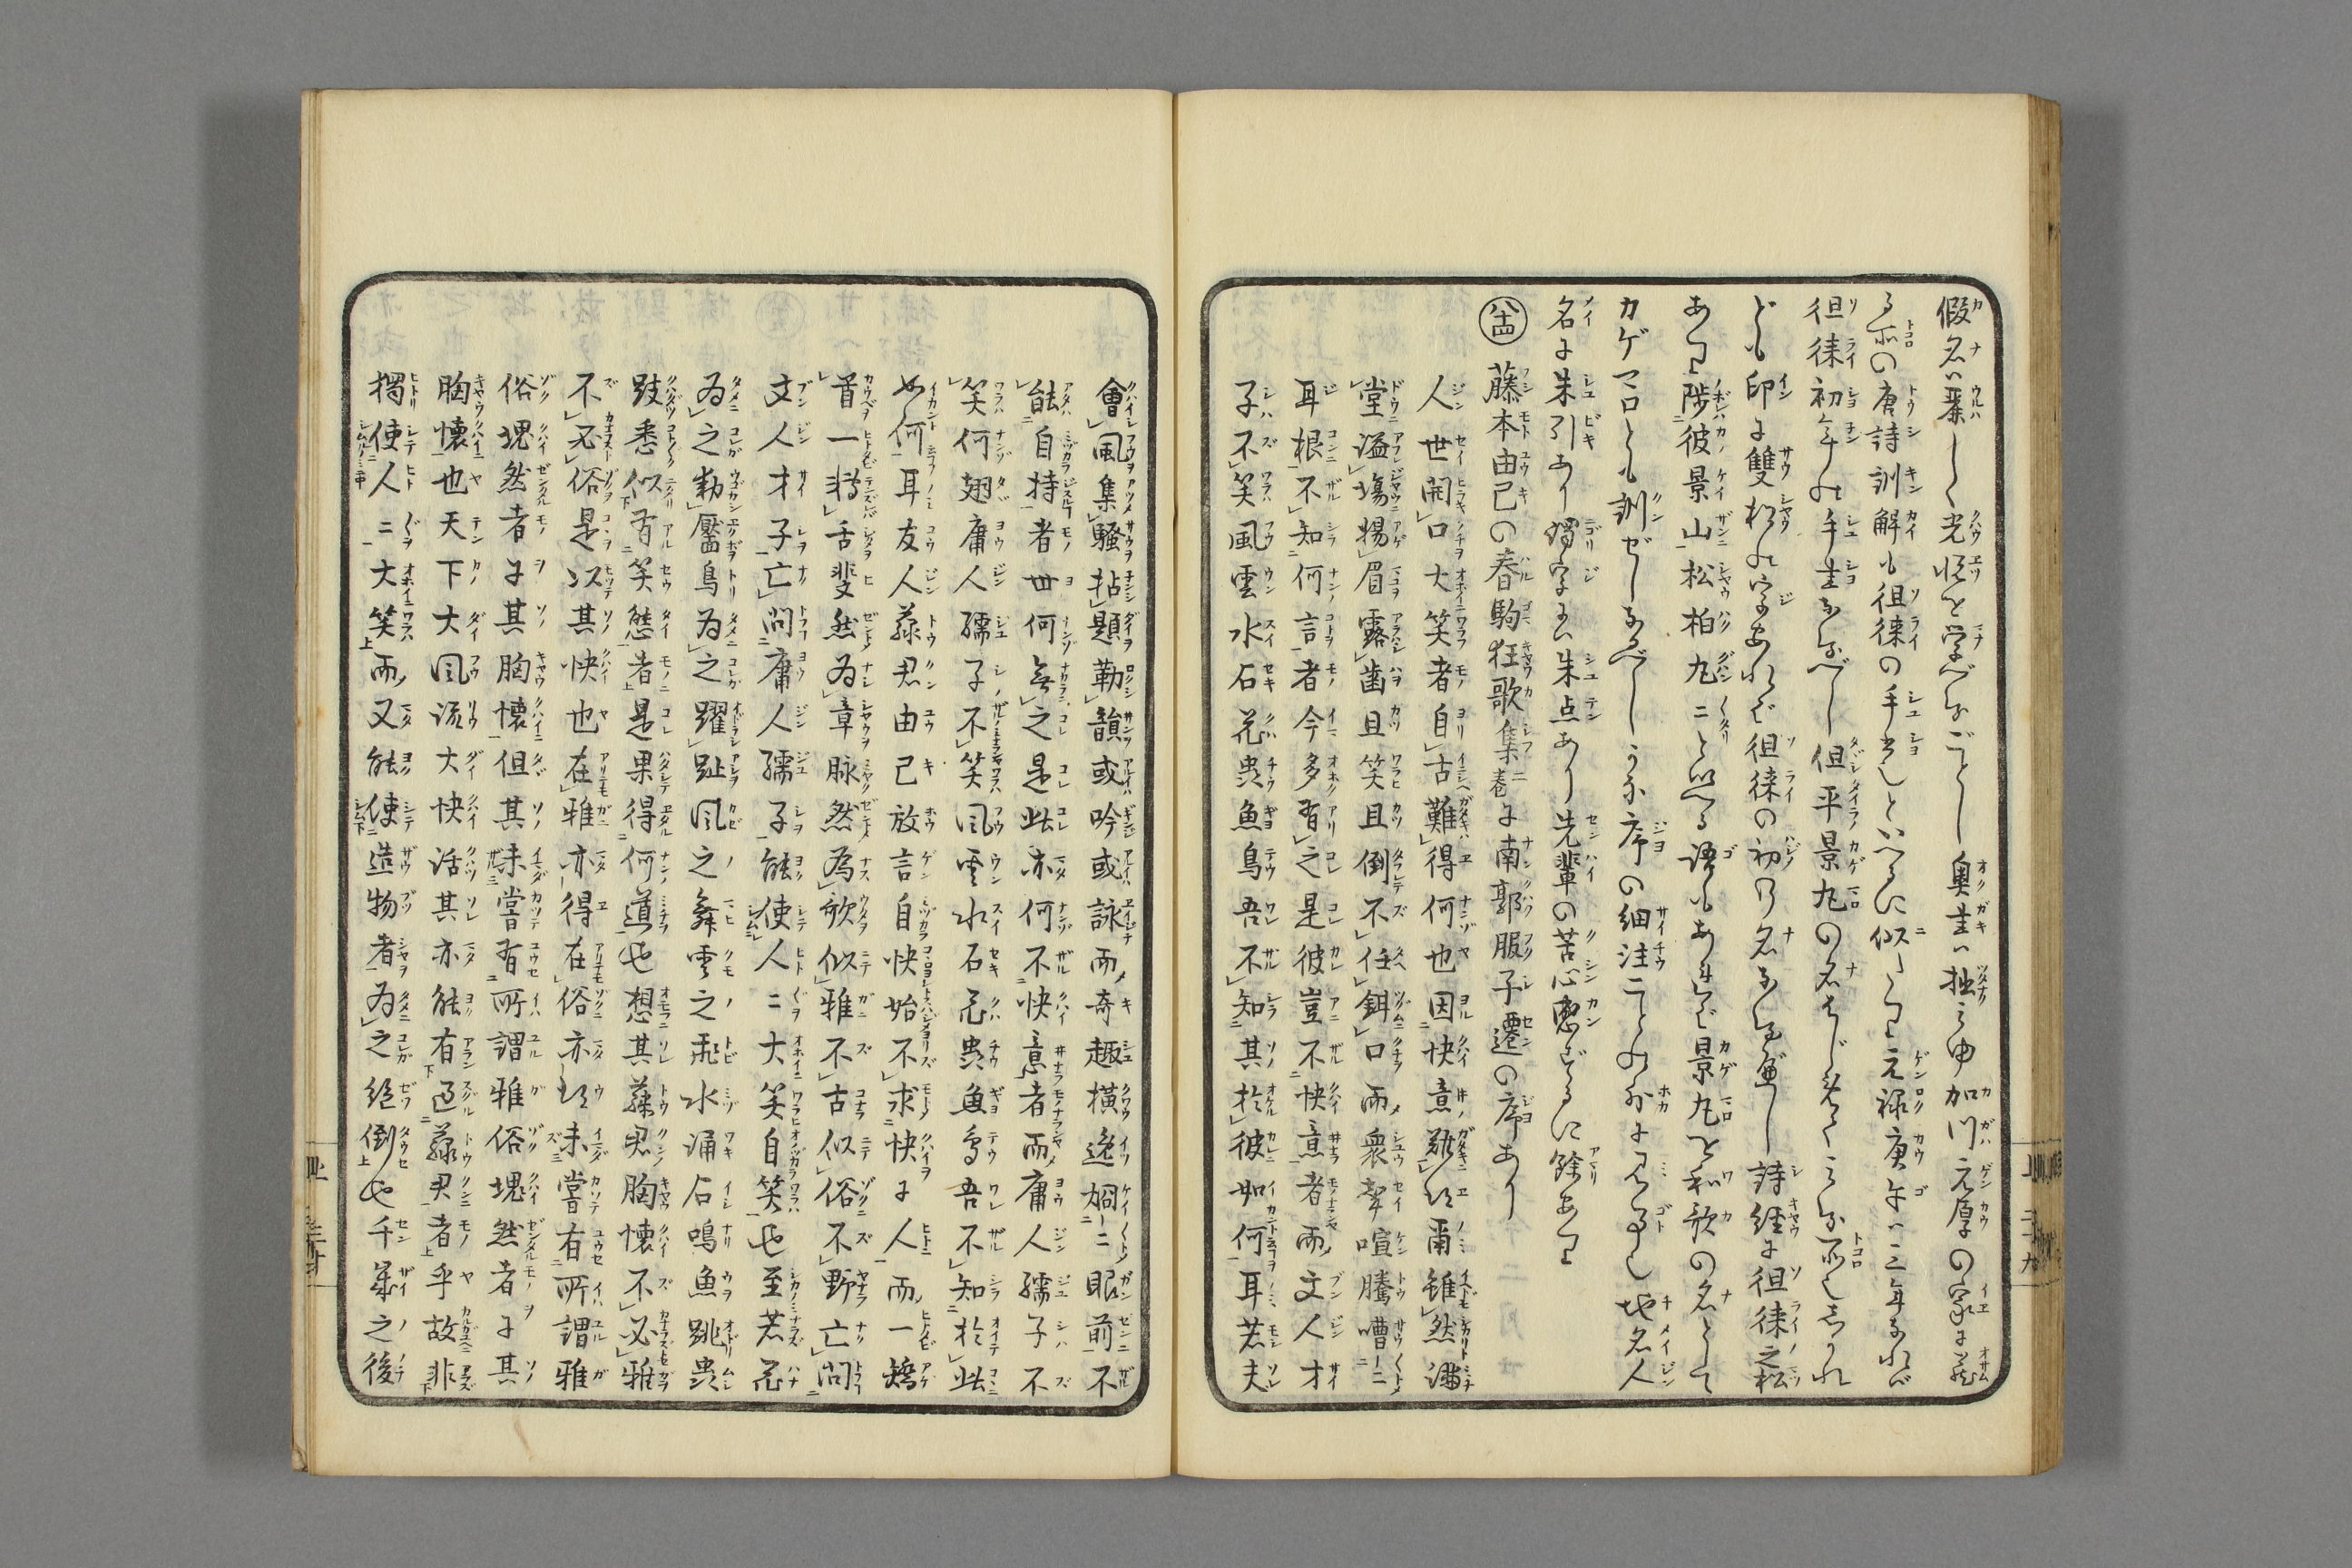 假名ハ栞しく光悦を学べるごとし奥書ハ拙之由加川元厚の家に蔵
る所の唐詩訓解も徂徠の手書也といへるに似たり元禄庚午ハ三年なれバ
徂徠初年の手書なるべし但平景丸の名をしるしたる所也しかれ
ども印に雙松の字あれば徂徠の初の名なる歟し詩経に徂徠之松
あり陟彼景山松柏丸ニといへる語もあれば景丸を和歌の名として
カゲマロとも訓ぜしなるべしうた序の細注ことの外に見事也地名人
名に朱引あり濁字にハ朱点あり先輩の苦心感ずるに餘あり
八十四 藤本由己の春駒狂歌集二巻に南郭服子遷の序あり
人世開口大笑者自古難得何也因快意難得爾雖然満
堂溢場揚眉露齒且笑且倒不任鉺口而衆聲喧騰嘈ーニ
耳根不知何言者今多有之是彼豈不快意者而文人才
子不笑風雲水石花虫魚鳥吾不知其於彼如何耳若夫
會風集騒拈題勒韻或吟或詠而奇趣横逸炯ーニ眼前不
能自持者世何無之是此亦何不快意者而庸人孺子不
笑何翅庸人孺子不笑風雲水石花虫魚鳥吾不知於此
如何耳友人藤君由己放言自快始不求快于人而一矯
首一轉舌斐然為章脉然為歌似雅不古似俗不野亡問
文人才子亡問庸人孺子能使人ニ大笑自笑也至若花
為之動靨鳥為之躍趾風之舞雲之飛水涌石鳴魚跳虫
跂悉似有笑態者是果得何道也想其藤君胸懐不必雅
不必俗是以其快也在雅亦得在俗亦得未嘗有所謂雅
俗塊然者于其胸懐但其未嘗有所謂雅俗塊然者于其
胸懐也天下大風流大快活其亦能有過藤君者乎故非
獨使人ニ大笑而又能使造物者為之絶倒也千歳之後